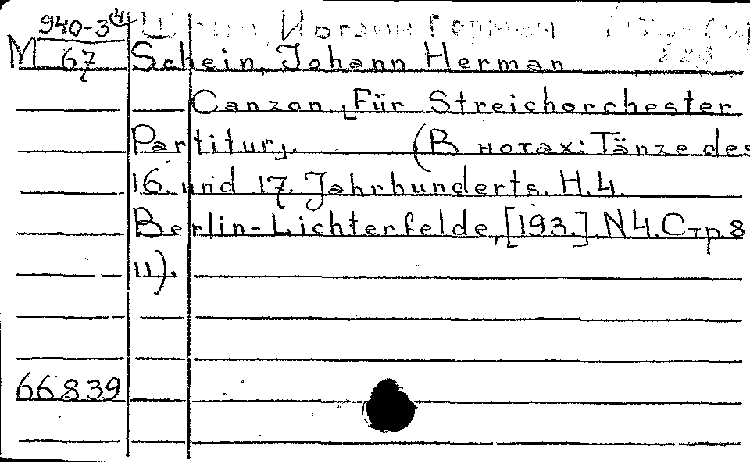 940-3
M 67 Schein, Johann Herman
Canzon [Für Streichorchester
Partitur]. (В нотах: Tänze des
16. und 17. Jahrhunderts. H. 4.
Berlin-Lichterfelde, [193.] N 4. Стр 8
11).
66839